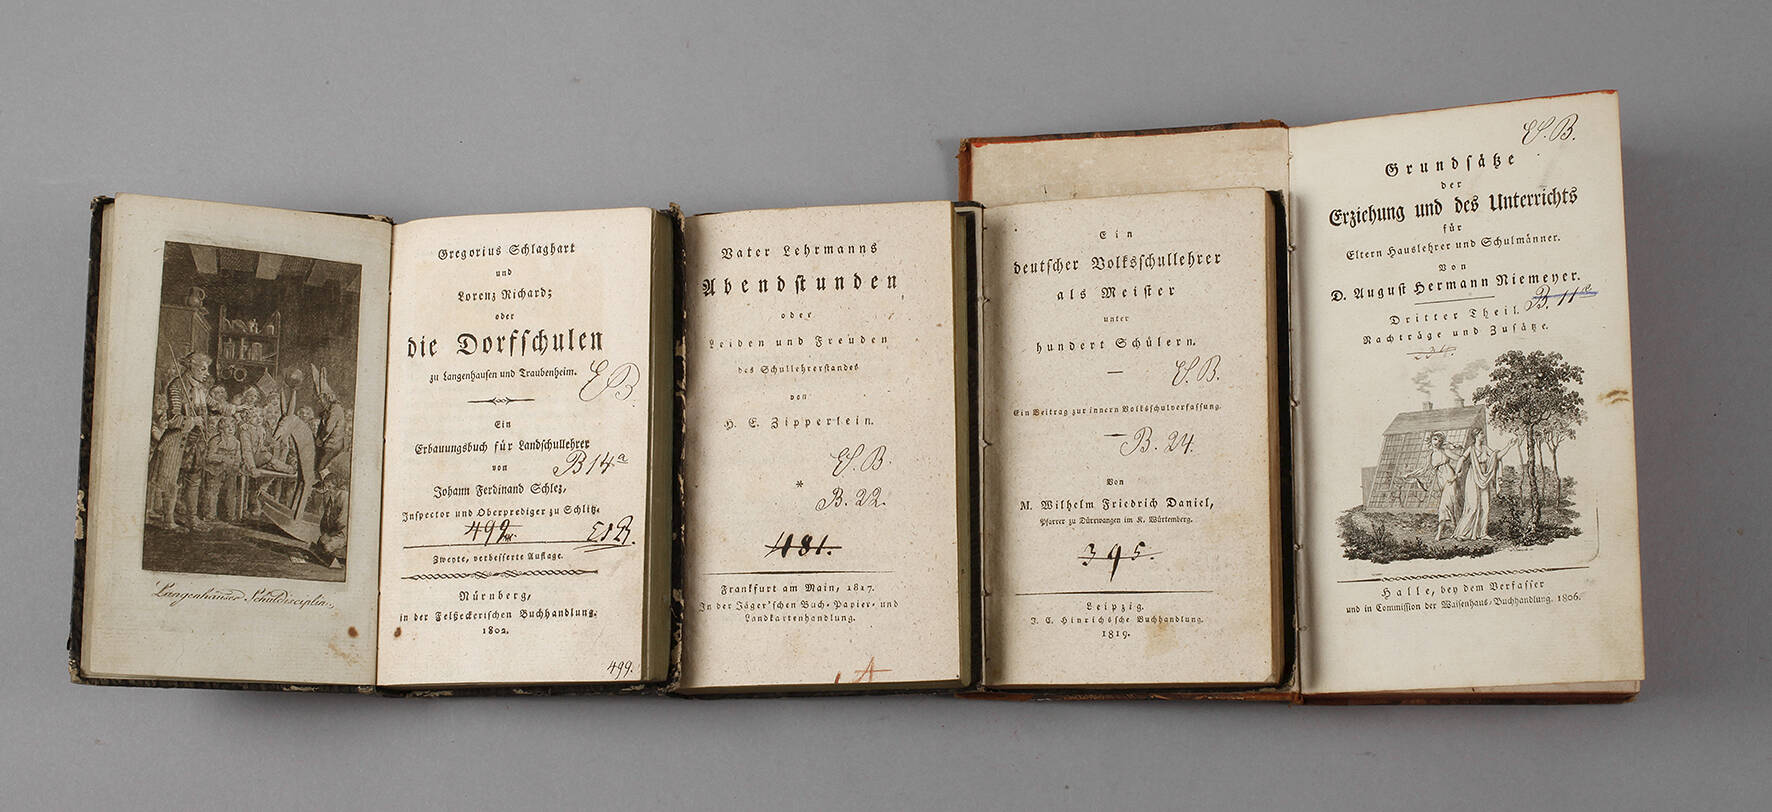 Langenhauser Schuldisciplin.
Gregorius Schlaghart
und
Lorenz Richard;
oder
die Dorfschulen
zu Langenhausen und Traubenheim.
E B
Ein
Erbauungsbuch für Landschullehrer
von
B 14 a
Johann Ferdinand Schlez,
Inspector und Oberprediger zu Schlitz.
499
E S B.
Zweyte, verbesserte Auflage.
Nürnberg,
in der Felßeckerischen Buchhandlung.
1802.
499.
Vater Lehrmanns
Abendstunden
oder
Leiden und Freuden
des Schullehrerstandes
von
H. E. Zipperlein.
B.
*
B. 22.
481.
Frankfurt am Main, 1817.
In der Jäger'schen Buch- Papier- und
Landkartenhandlung.
A
Ein
deutscher Volksschullehrer
als Meister
unter
hundert Schülern.
B.
Ein Beitrag zur innern Volksschulverfassung.
B. 24.
Von
M. Wilhelm Friedrich Daniel,
Pfarrer zu Dürrwangen im K. Würtemberg.
395.
Leipzig.
J. C. Hinrichssche Buchhandlung.
1819.
B.
Grundsätze
der
Erziehung und des Unterrichts
für
Eltern Hauslehrer und Schulmänner.
Von
D. August Hermann Niemeyer.
B. 11
Dritter Theil.
Nachträge und Zusätze.
Halle, bey dem Verfasser
und in Commission der Waisenhaus-Buchhandlung. 1806.